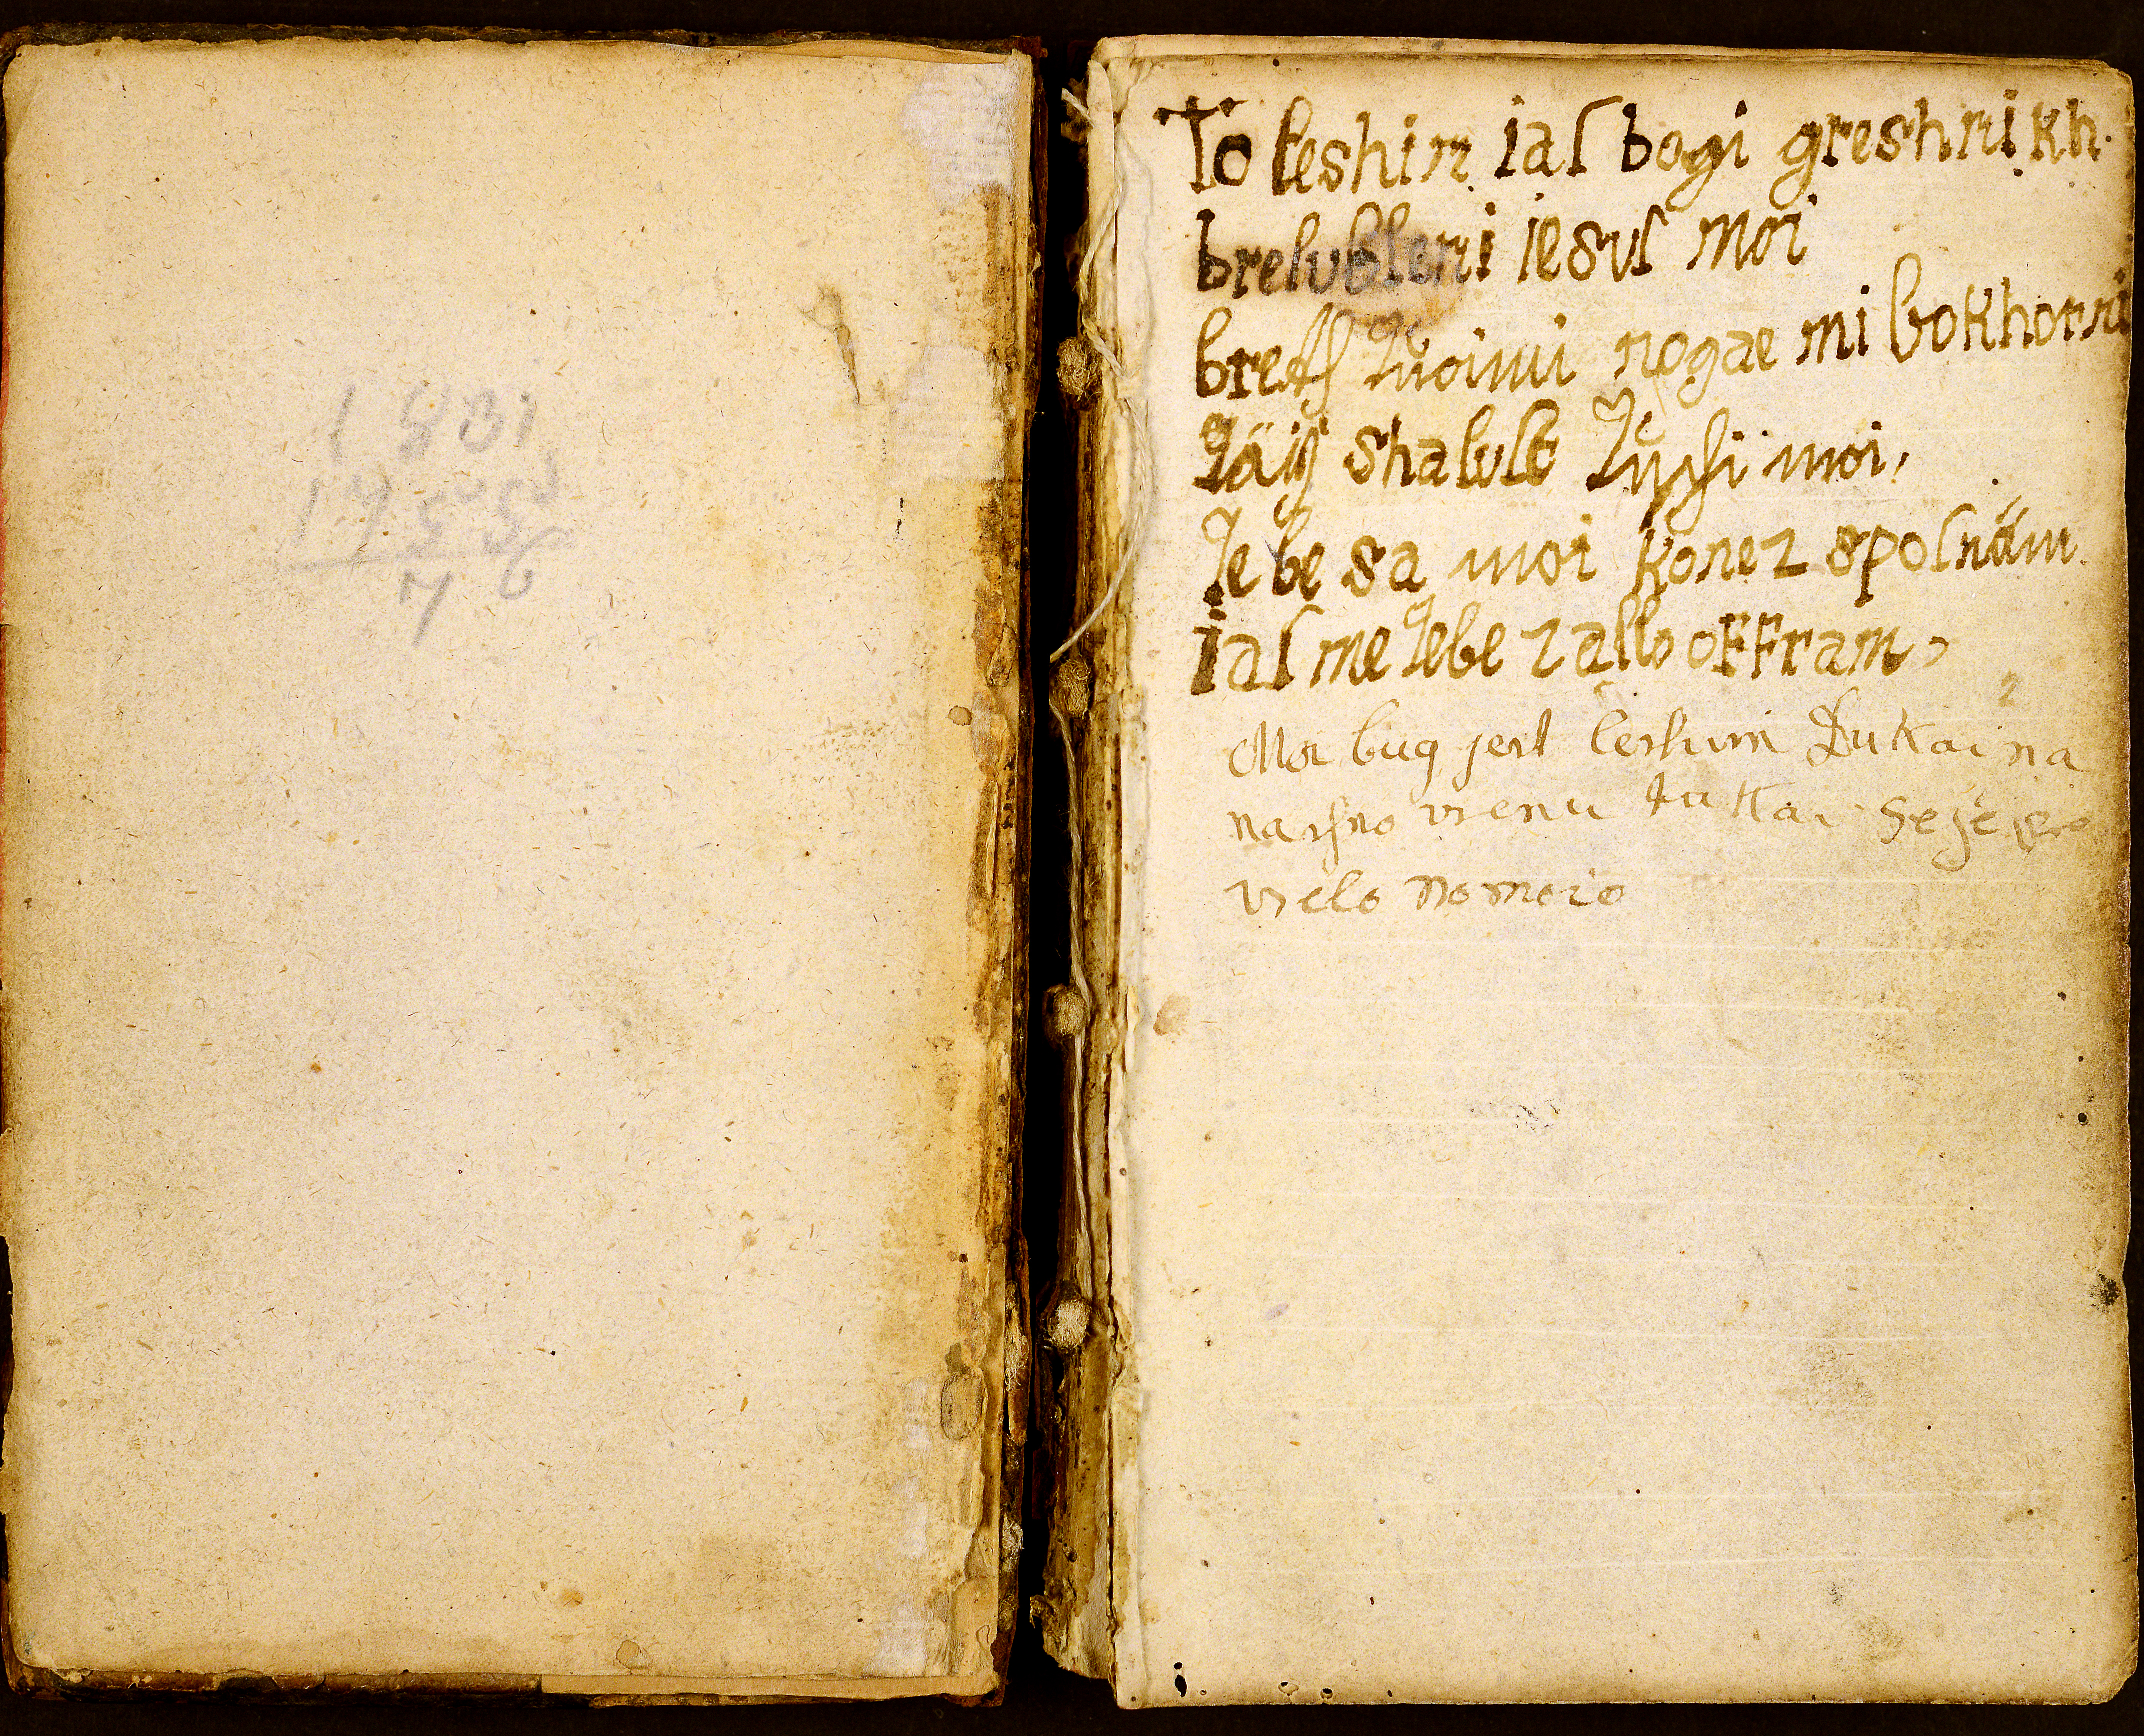 1831
1755
76
To leshin iaſ bogi greshnikh.
brelubleni iesuſ moi
bretſ Twoimi nogae mi bokhorni
Täiſ shalulo Tuſhi moi,
Tebe sa moi konez spoſnäm
iaſ me Tebe zallo oFFram,
Moi bug jest leshim Dukai na
vrenu tukai
velo no moio